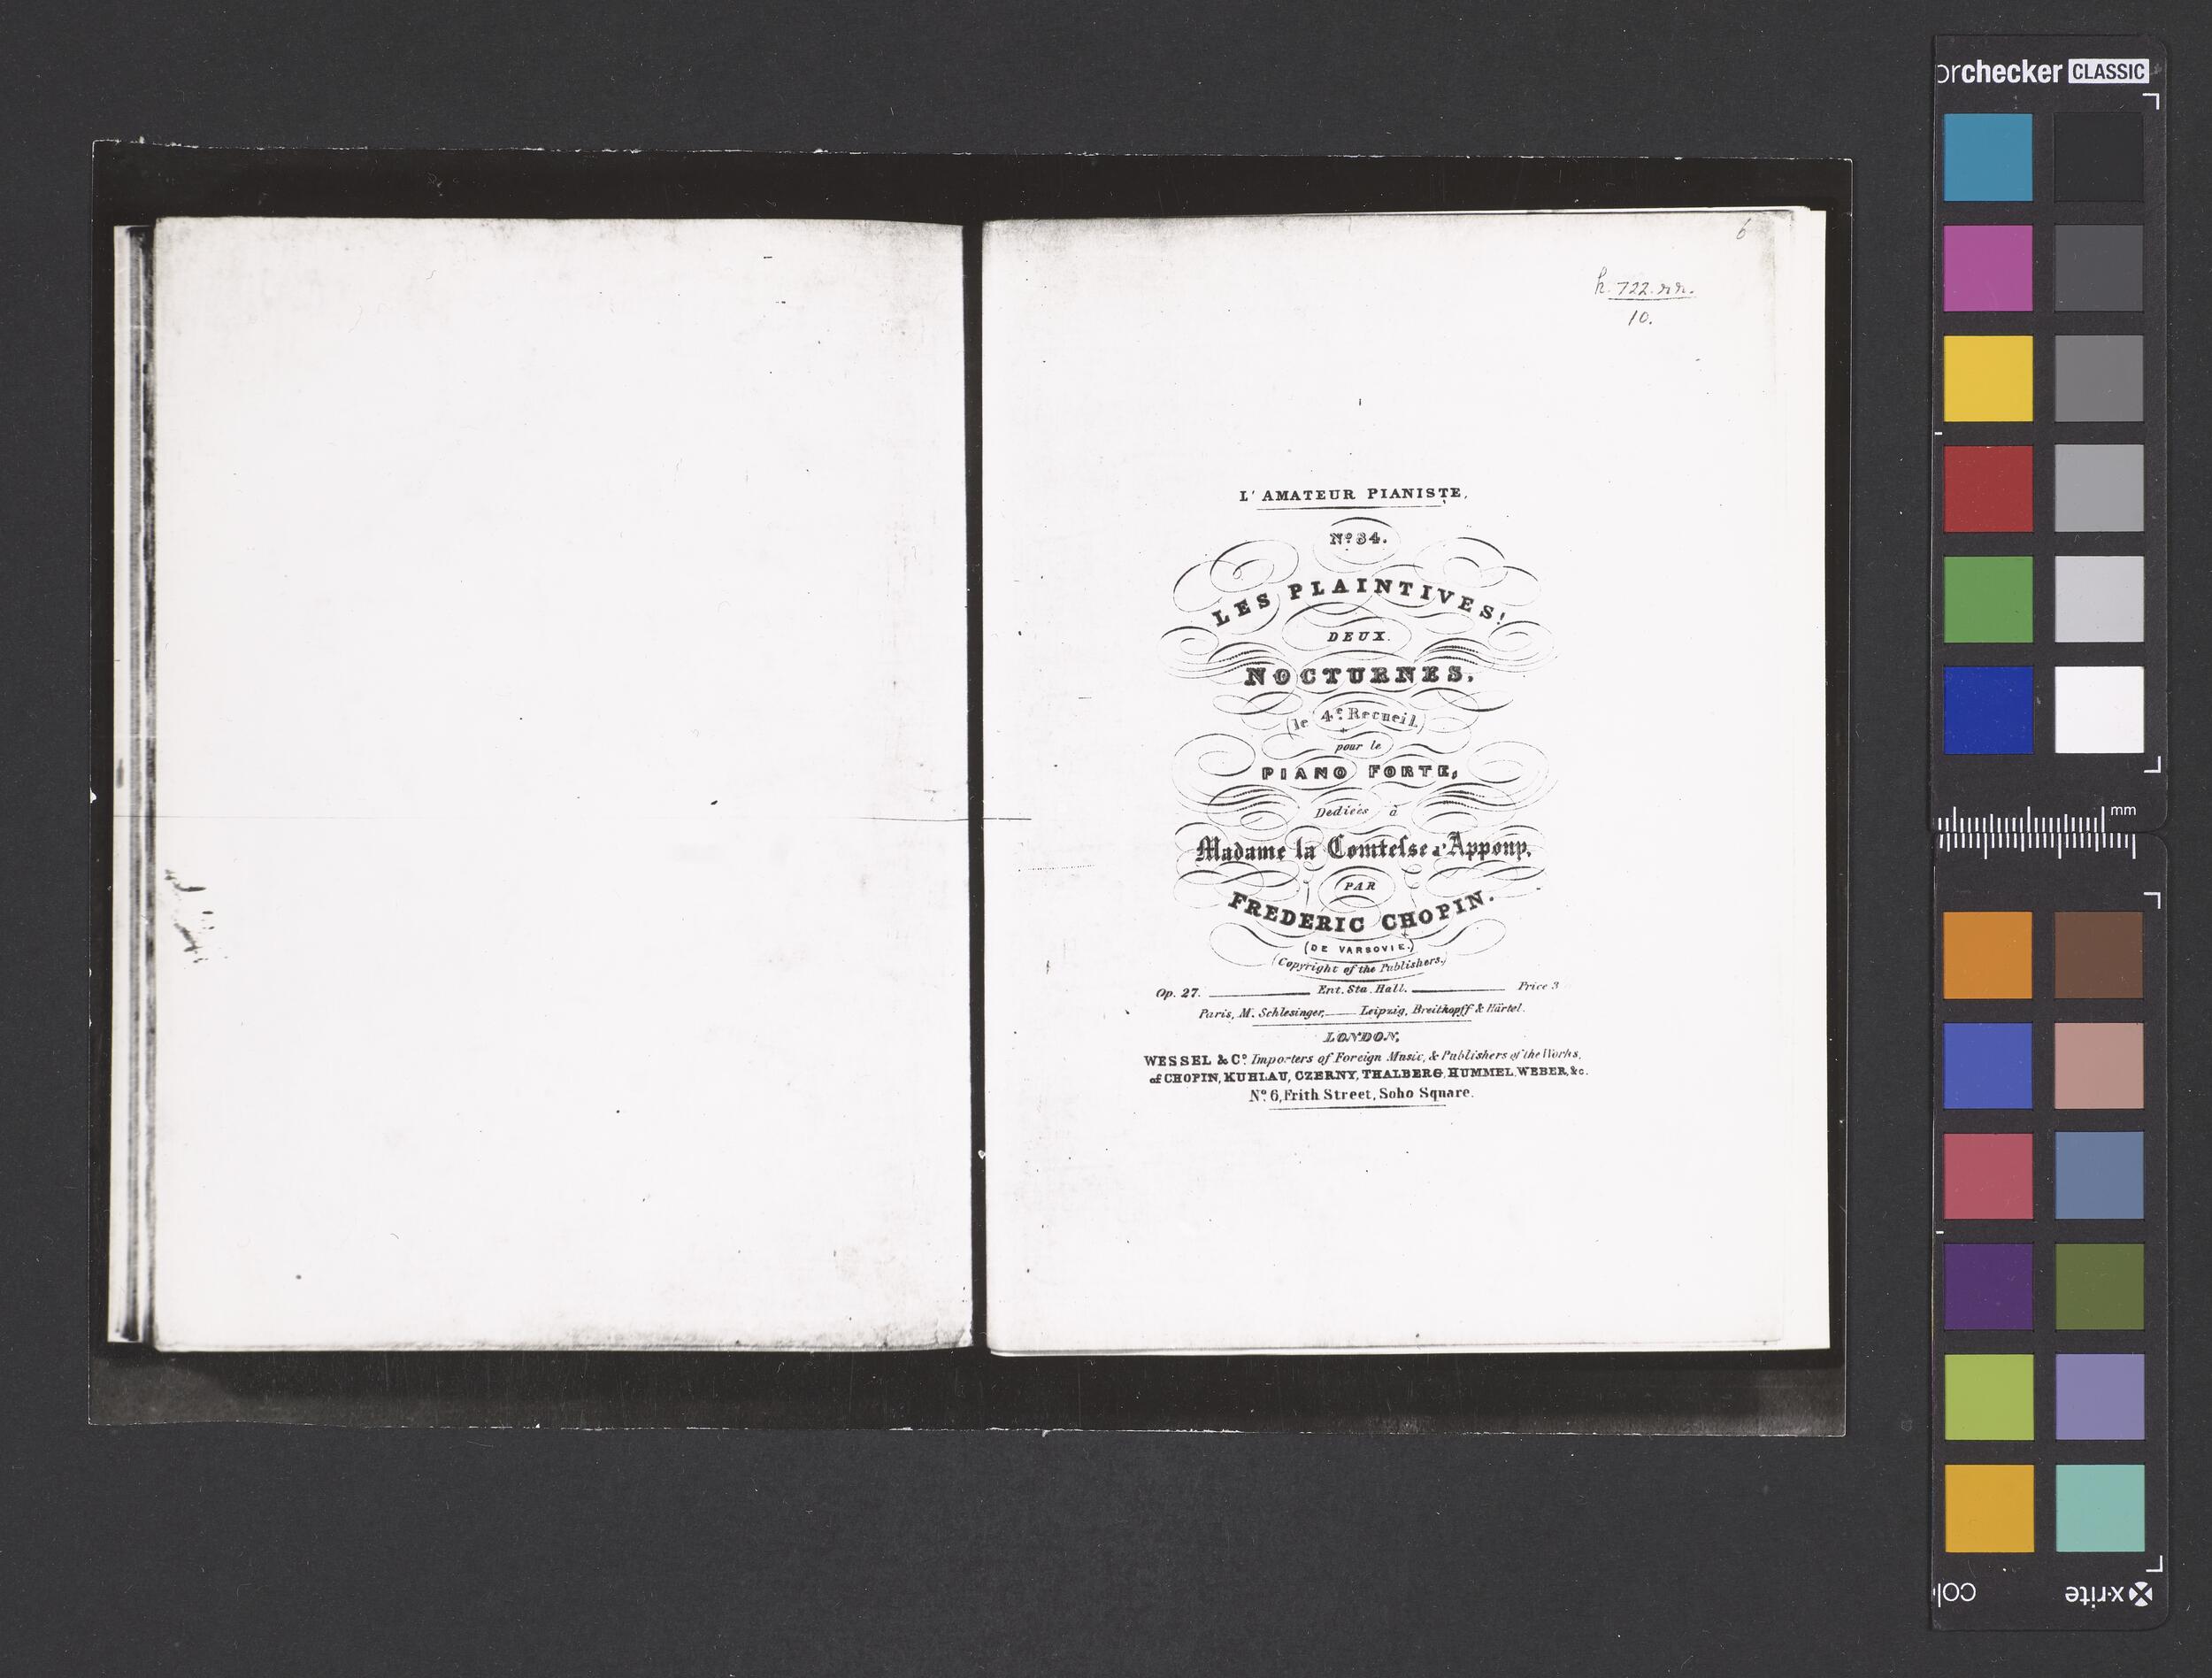 6
h. 722. rr.
10.
L' AMATEUR PIANISTE,
Nº 34.
LES PLAINTIVES!
DEUX.
NOCTURNES,
(le 4e. Recueil.)
pour le
PIANO FORTE,
Dediées à
Madame la Comteſse d'Appony,
PAR
FREDERIC CHOPIN.
(DE VARSOVIE.)
(Copyright of the Publishers.)
Op. 27. Ent. Sta. Hall. Price 3
Paris, M. Schlesinger, Leipzig, Breitkopff & Härtel.
LONDON,
WESSEL & Cº. Importers of Foreign Music, & Publishers of the Works,
of CHOPIN, KUHLAU, CZERNY, THALBERG, HUMMEL, WEBER, &c.
Nº. 6, Frith Street, Soho Square.
orchecker CLASSIC
mm
x-rite
col